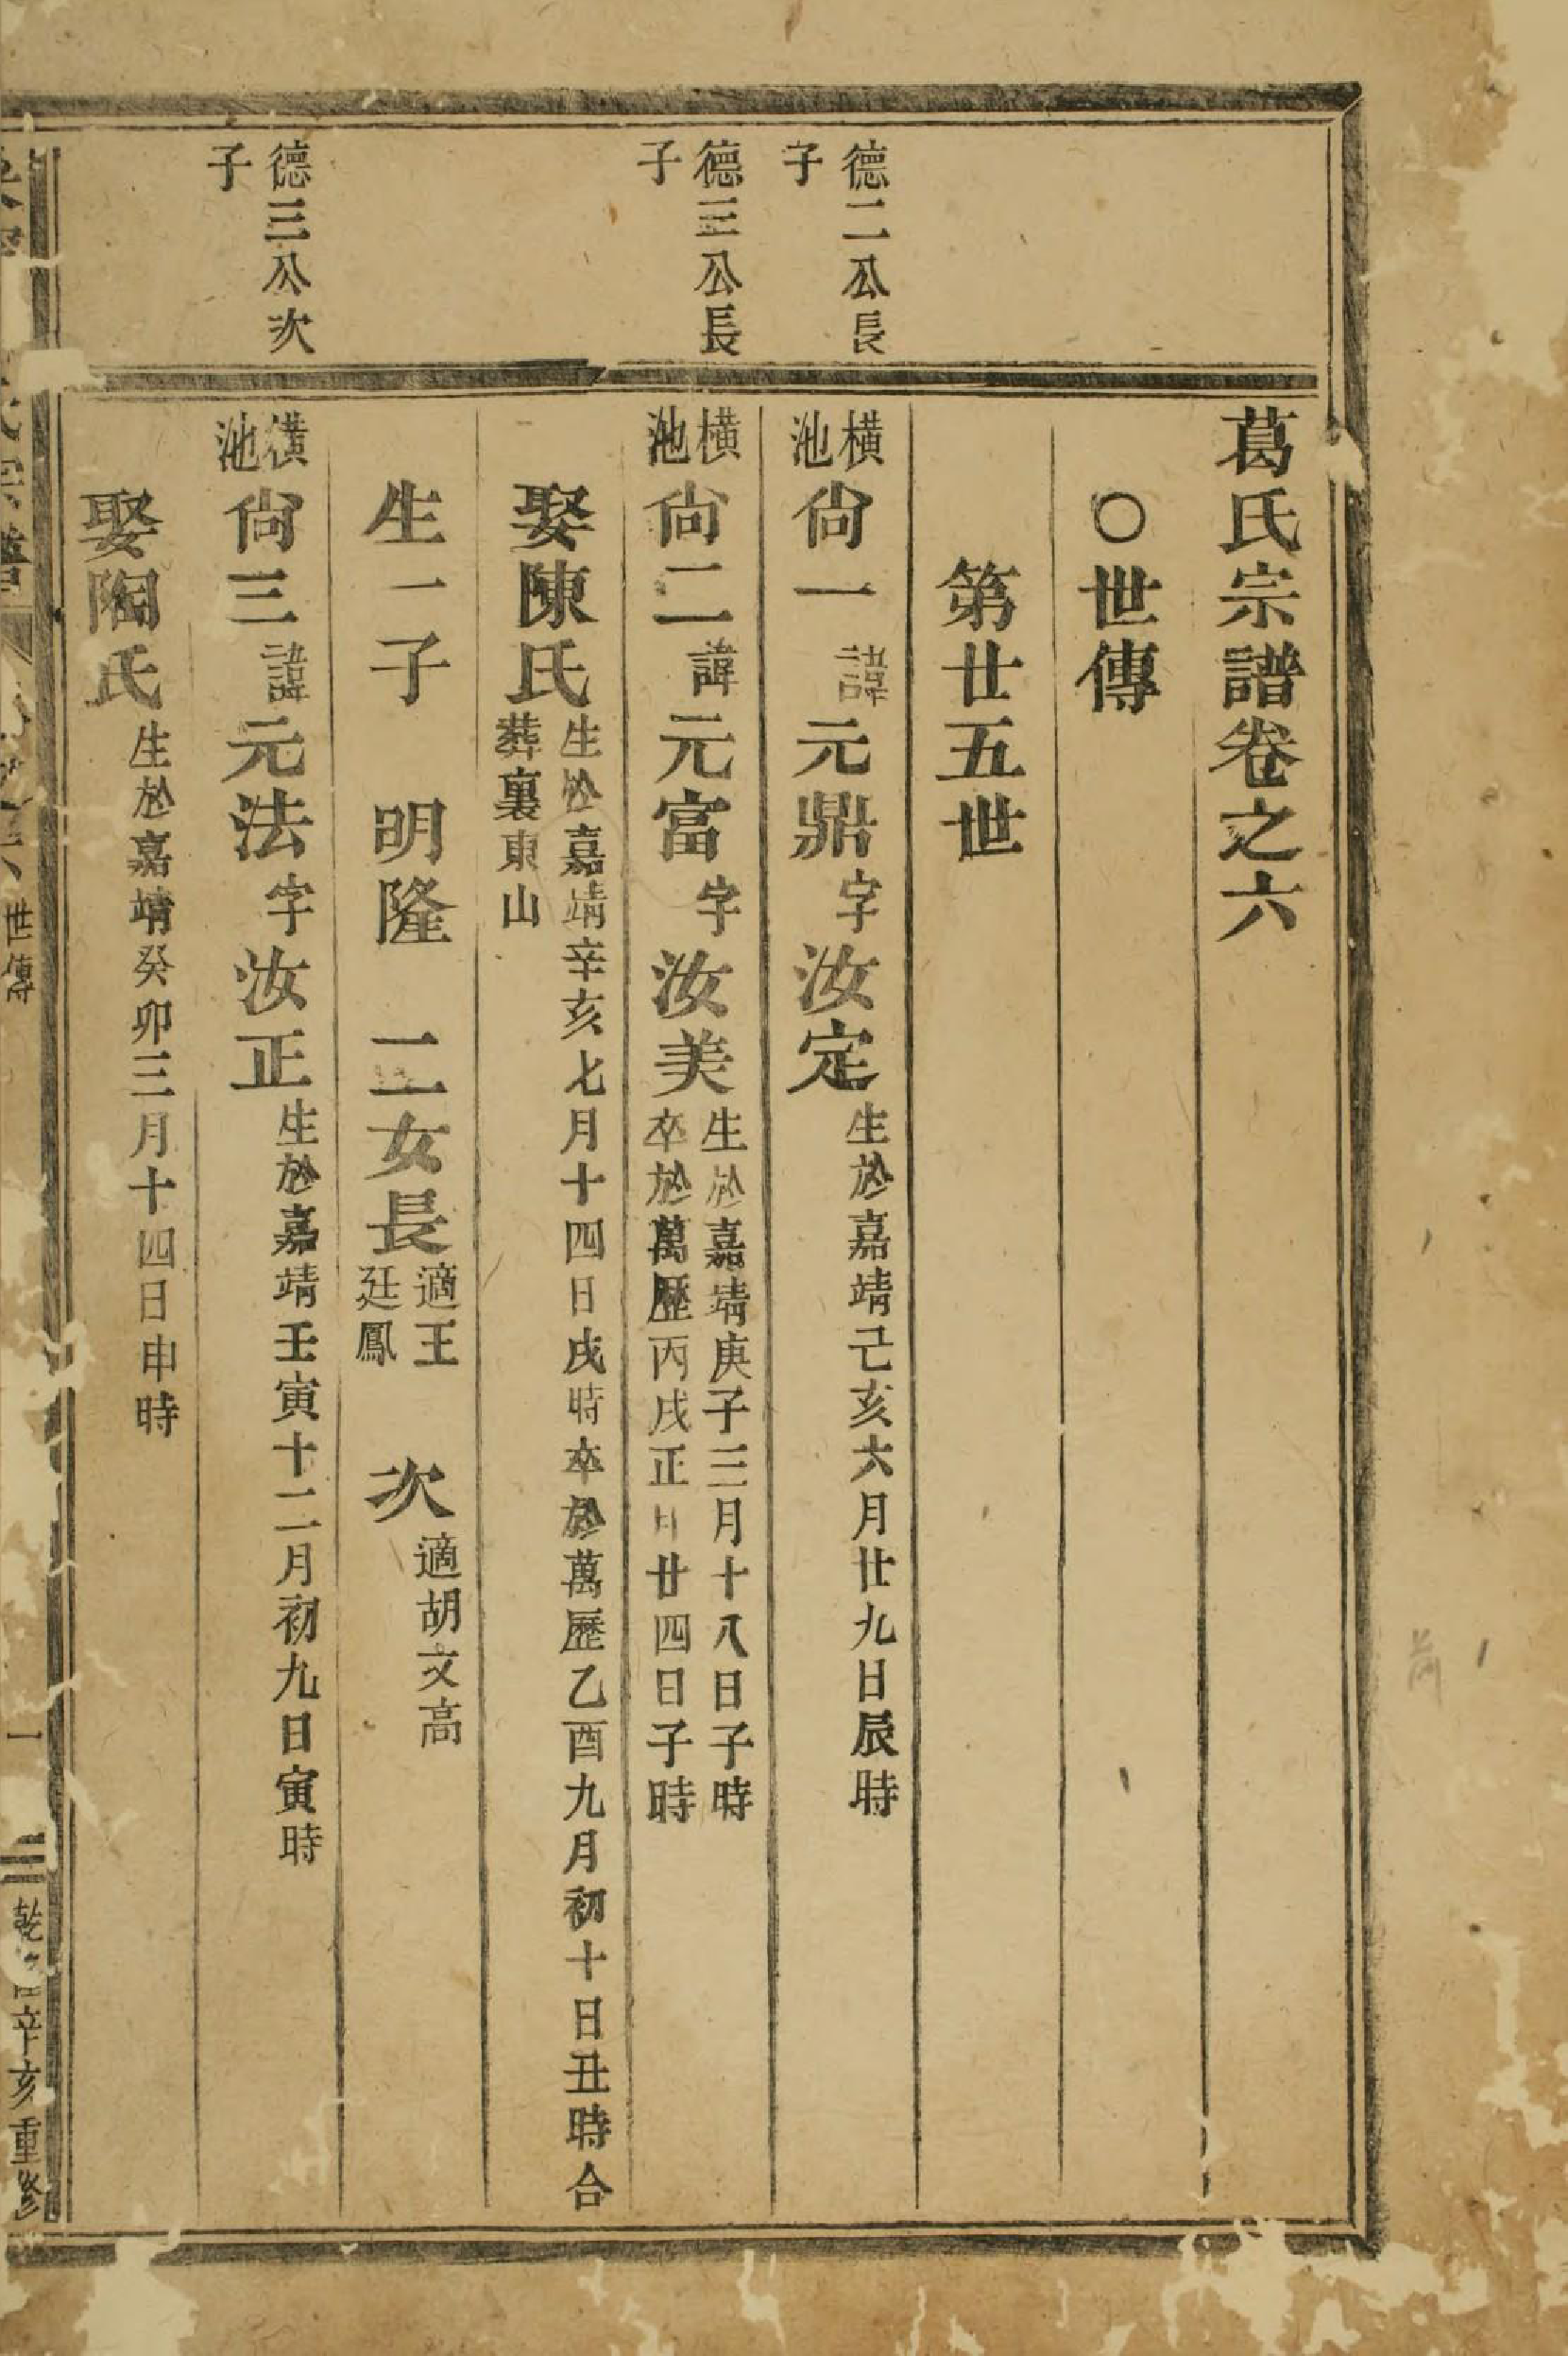 葛氏宗譜卷之六
〇世傳
第廿五世
德二公長
子
橫池尙一諱元鼎字汝定生於嘉靖己亥六月廿九日辰時
德三公長
子
橫池尙二諱元富字汝美生於嘉靖庚子三月十八日子時
卒於萬歷丙戌正月廿四日子時
娶陳氏生於嘉靖辛亥七月十四日戌時卒於萬歷乙酉九月初十日丑時合
葬裏東山
生一子 明隆 二女長適王廷鳳 次適胡文高
德三公次
子
橫池尙三諱元法字汝正生於嘉靖壬寅十二月初九日寅時
娶陶氏生於嘉靖癸卯三月十四日申時
氏宗譜 六 世傳 一 乾隆辛亥重修